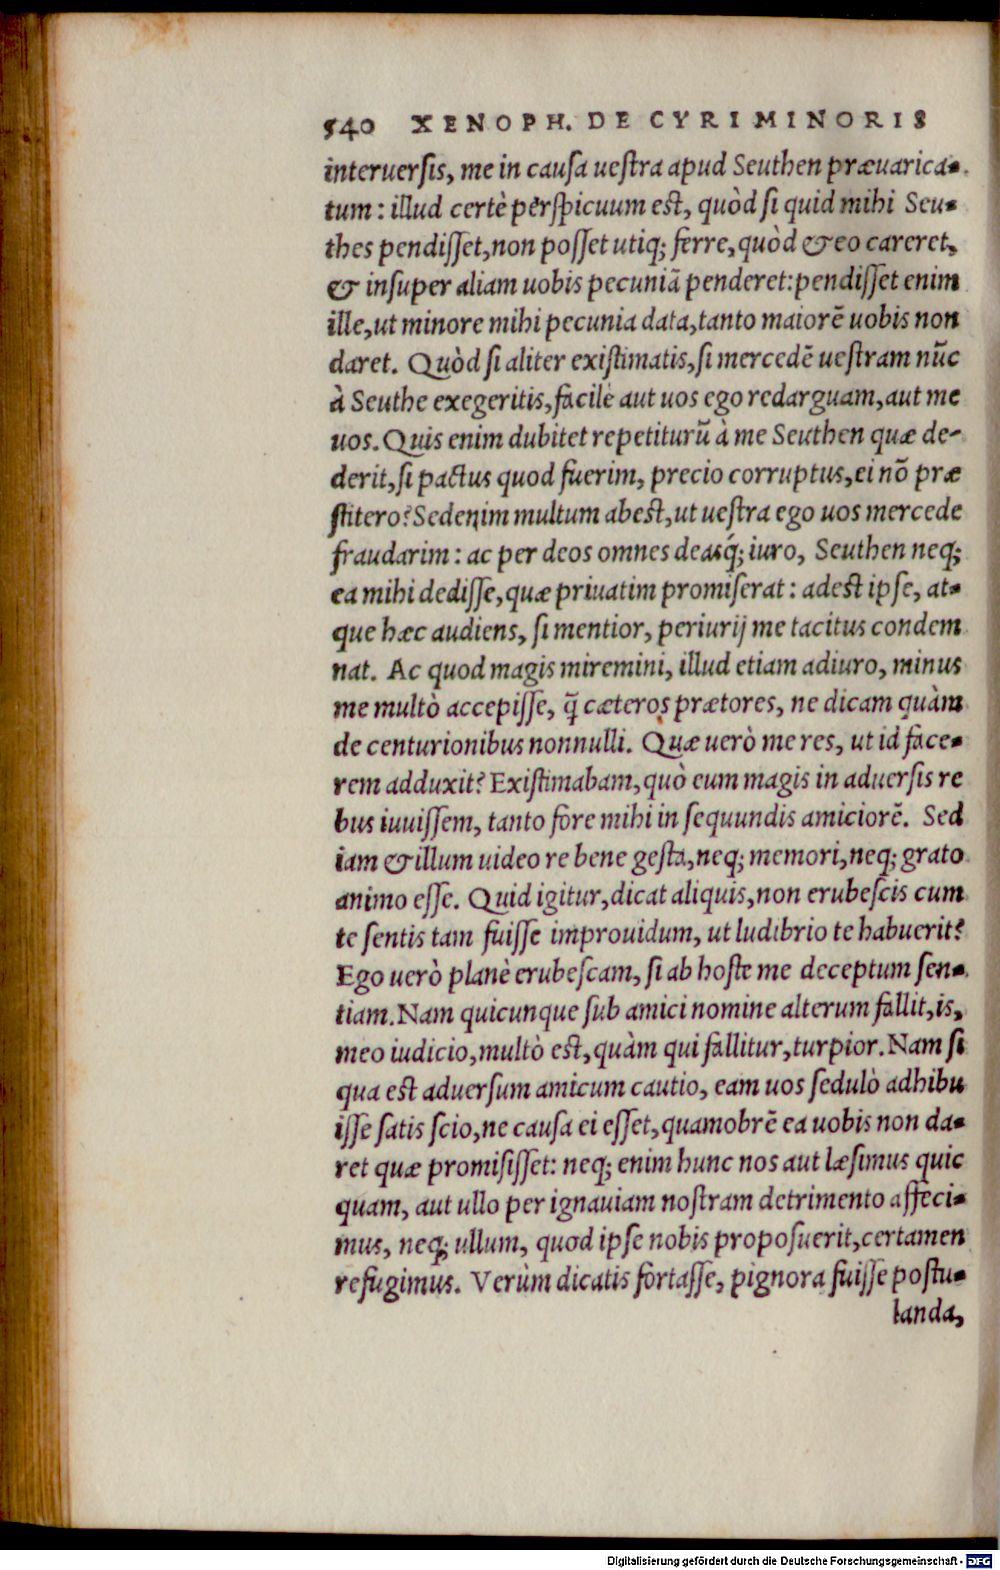 540 XENOPH. DE CYRI MINORIS
interuersis, me in causa uestra apud Seuthen præuarica-
tum: illud certè perspicuum est, quòd si quid mihi Seu-
thes pendisset, non posset utiq; ferre, quòd & eo careret,
& insuper aliam uobis pecuniā penderet: pendisset enim
ille, ut minore mihi pecunia data, tanto maiorē uobis non
daret. Quòd si aliter existimatis, si mercedē uestram nūc
à Seuthe exegeritis, facilè aut uos ego redarguam, aut me
uos. Quis enim dubitet repetiturū à me Seuthen quæ de-
derit, si pactus quod fuerim, precio corruptus, ei nō præ
stitero? Sed enim multum abest, ut uestra ego uos mercede
fraudarim: ac per deos omnes deasq́; iuro, Seuthen neq;
ea mihi dedisse, quæ priuatim promiserat: adest ipse, at-
que hæc audiens, si mentior, periurij me tacitus condem
nat. Ac quod magis miremini, illud etiam adiuro, minus
me multò accepisse, q̄ cæteros prætores, ne dicam quàm
de centurionibus nonnulli. Quæ uerò me res, ut id face-
rem adduxit? Existimabam, quò eum magis in aduersis re
bus iuuissem, tanto fore mihi in sequundis amiciorē. Sed
iam & illum uideo re bene gesta, neq; memori, neq; grato
animo esse. Quid igitur, dicat aliquis, non erubescis cum
te sentis tam fuisse improuidum, ut ludibrio te habuerit?
Ego uerò planè erubescam, si ab hoste me deceptum sen-
tiam. Nam quicunque sub amici nomine alterum fallit, is,
meo iudicio, multò est, quàm qui fallitur, turpior. Nam si
qua est aduersum amicum cautio, eam uos sedulò adhibu
isse satis scio, ne causa ei esset, quamobrē ea uobis non da-
ret quæ promisisset: neq; enim hunc nos aut læsimus quic
quam, aut ullo per ignauiam nostram detrimento affeci-
mus, neq; ullum, quod ipse nobis proposuerit, certamen
refugimus. Verùm dicatis fortasse, pignora fuisse postu-
landa,
Digitalisierung gefördert durch die Deutsche Forschungsgemeinschaft - DFG